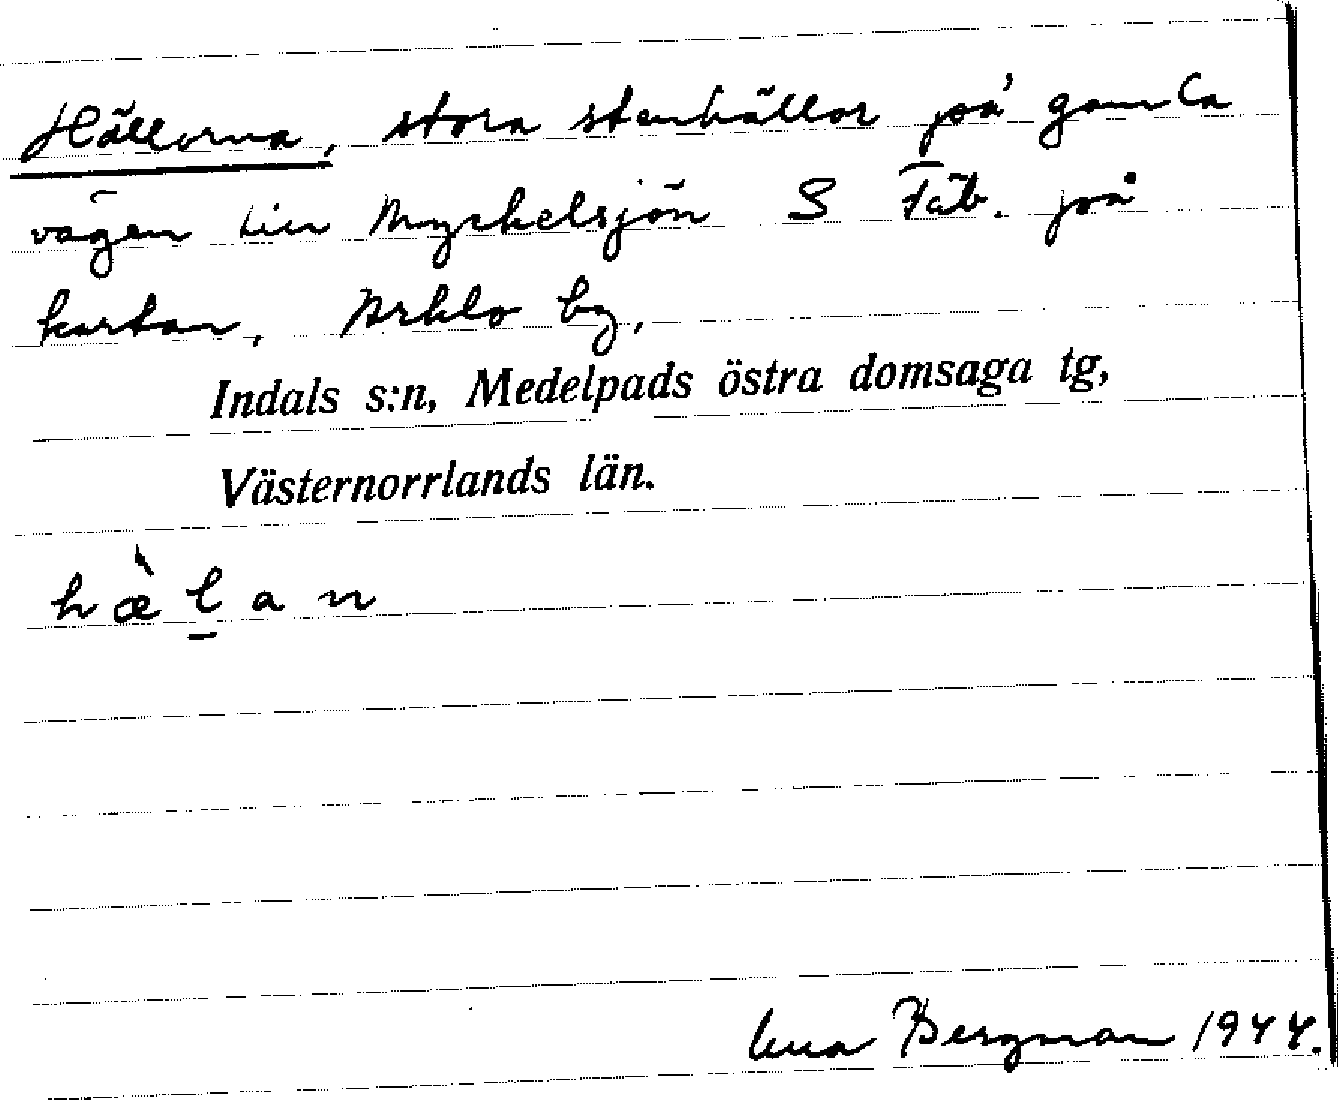 Hällorna, stora stenhällor på gamla
vägen till Myckelsjön S Fäb. på
kartan, Arklo by,
Indals s:n, Medelpads östra domsaga tg,
Västernorrlands län.
hæ̀l̠an
Bergman 1944.